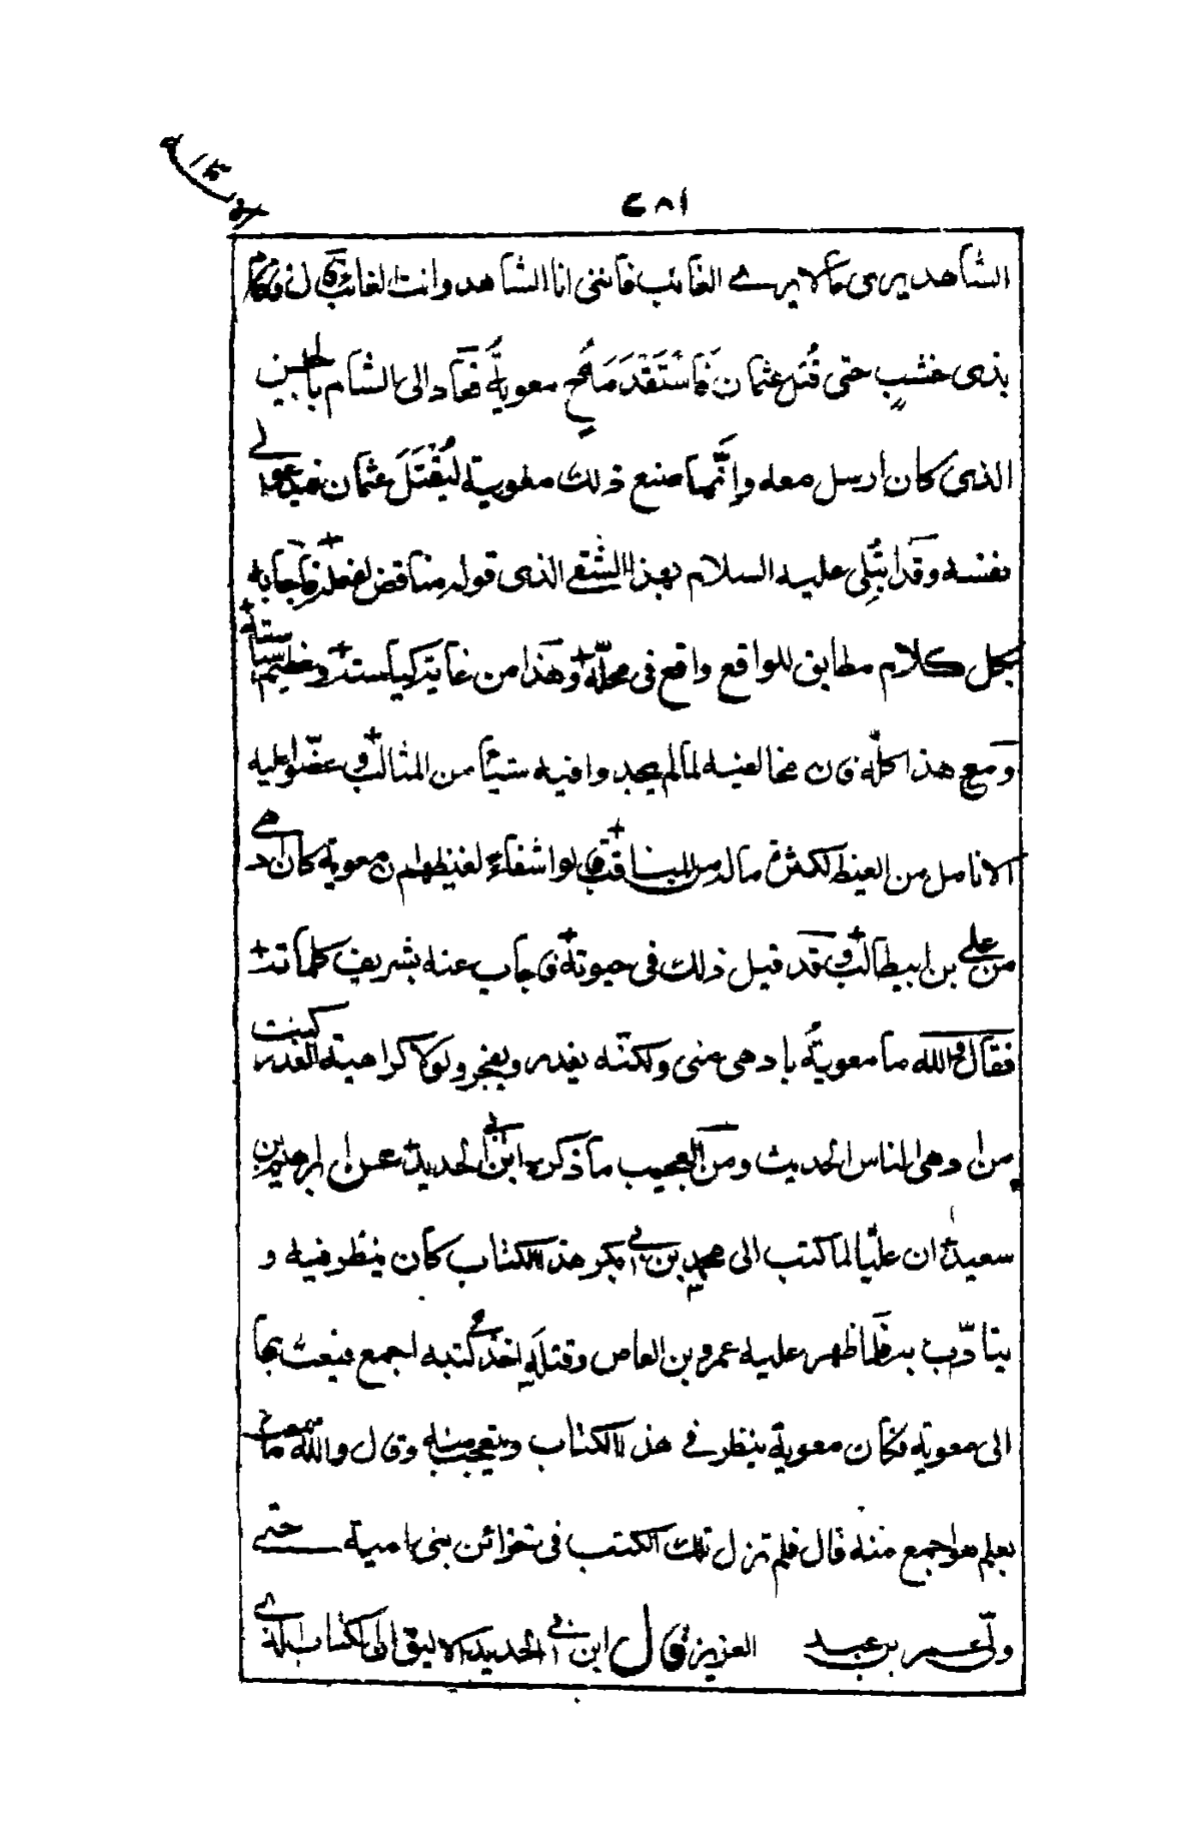 ٢٨١
الشاهد يرى ما لا يرى الغائب فانني انا الشاهد وانت الغائب قال فاقام
بذى خشب حتى قُتل عثمان فاستقدمه ح معوية فعاد الى الشام بالجيش
الذى كان ارسل معه وانّما صنع ذلك معوية ليُقتَلَ عثمان فيدعو الى
نفسه وقد ابتُلى عليه السلام بهذا الشقى الذى قوله مناقض لفعله فاجابه
بكل كلام مطابق للواقع واقع فى محلّه وهذا من غاية كياسته وعظيم سياسته
ومع هذا كلّه فان مخالفيه لما لم يجدوا فيه شيئا من المثالب وعضّوا عليه
الانامل من الغيظ لكثرة ما له من المناقب قالوا شفاء لغيظهم ان معوية كان ادهى
من على بن ابيطالب وقد قيل ذلك فى حيوته فاجاب عنه بشريف كلماته
فقال والله ما معويةُ بادهى منى ولكنّه يغدر ويفجر ولولا كراهية الغدر كنت
من ادهى الناس الحديث ومن العجيب ما ذكره ابن ابى الحديد عن ابرهيم بن
سعيد ان عليّا لما كتب الى محمد بن ابى بكر هذا الكتاب كان ينظر فيه و
يتادّب به فلما ظهر عليه عمرو بن العاص وقتله اخذ كتبه اجمع فبعث بها
الى معوية فكان معوية ينظر فى هذا الكتاب ويتعجب منه وقال والله ما سمعت
بعلم هو اجمع منه قال فلم تزل تلك الكتب فى خزائن بنى امية حتى
ولّى عمر بن عبد العزيز قال ابن ابى الحديد الاليق ان الكتاب الذى